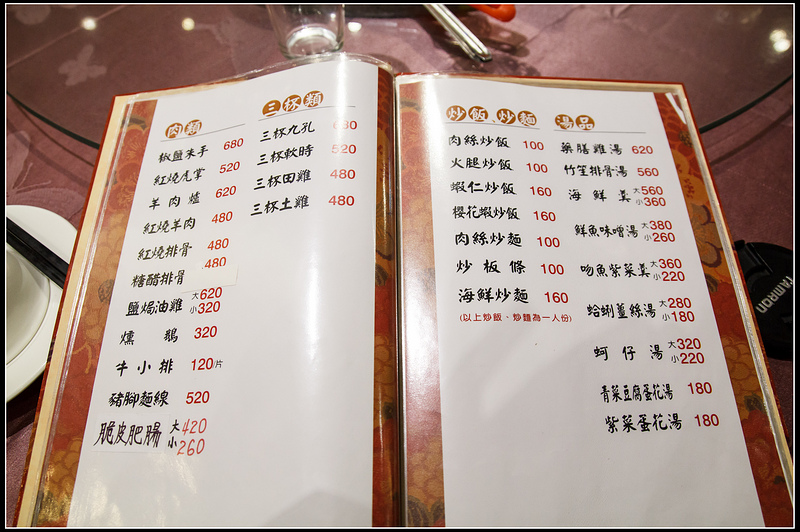 肉類
椒鹽朱手 680
紅燒虎掌 520
羊肉爐 620
紅燒羊肉 480
紅燒排骨 480
糖醋排骨 480
鹽焗油雞 大620 小320
燻鵝 320
牛小排 120/片
豬腳麵線 520
脆皮肥腸 大420 小260
三杯類
三杯九孔
三杯軟時 520
三杯田雞 480
三杯土雞 480
炒飯、炒麵
肉絲炒飯 100
火腿炒飯 100
蝦仁炒飯 160
櫻花蝦炒飯 160
肉絲炒麵 100
炒板條 100
海鮮炒麵 160
(以上炒飯、炒麵為一人份)
湯品
藥膳雞湯 620
竹笙排骨湯 560
海鮮羹 大560 小360
鮮魚味噌湯 大380 小260
吻魚紫菜羹 大360 小220
蛤蜊薑絲湯 大280 小180
蚵仔湯 大320 小220
青菜豆腐蛋花湯 180
紫菜蛋花湯 180
TAMRON